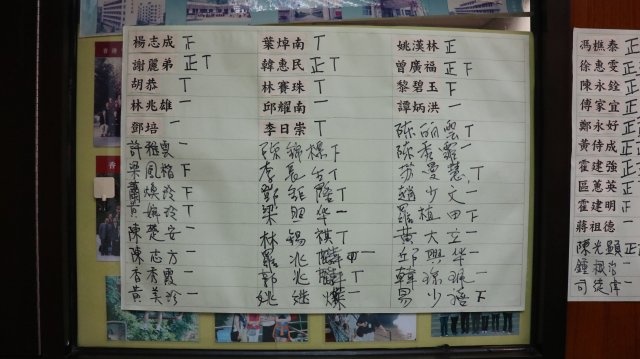 楊志成 下 葉焯南 丅 姚漢林 正
謝麗弟 正丅 韓惠民 正丅 曾廣福 正下
胡恭 丅 林賽珠 丅 黎碧玉 下
林兆雄 一 邱耀南 一 譚炳洪 一
鄧培 一 李日崇 丅 陳丽雲 丅
許雅雯 一 陳錦棉 下 陳秀霞 一
梁風楷 下 李長 丅 曼慧 丅
蕭煥玲 下 鄭鉅隆 丅 趙少文 一
婉玲 丅 梁照华 一 羅植田 下
陳楚安 一 林錫祺 丅 黃大立 一
陳志方 一 羅兆麟 邱興华 一
香秀霞 一 郭兆麟 正 韓瓊 一
黃美珍 一 姚 燦 一 易少
馮樵泰 正
徐惠雯
陳永銓 正
傅家宜 正
鄭永好 正
黃侍成 正
霍建強 正
區蕙英 正
霍建明 下
蔣祖德
陳光顯 正
鍾
司徒偉 一